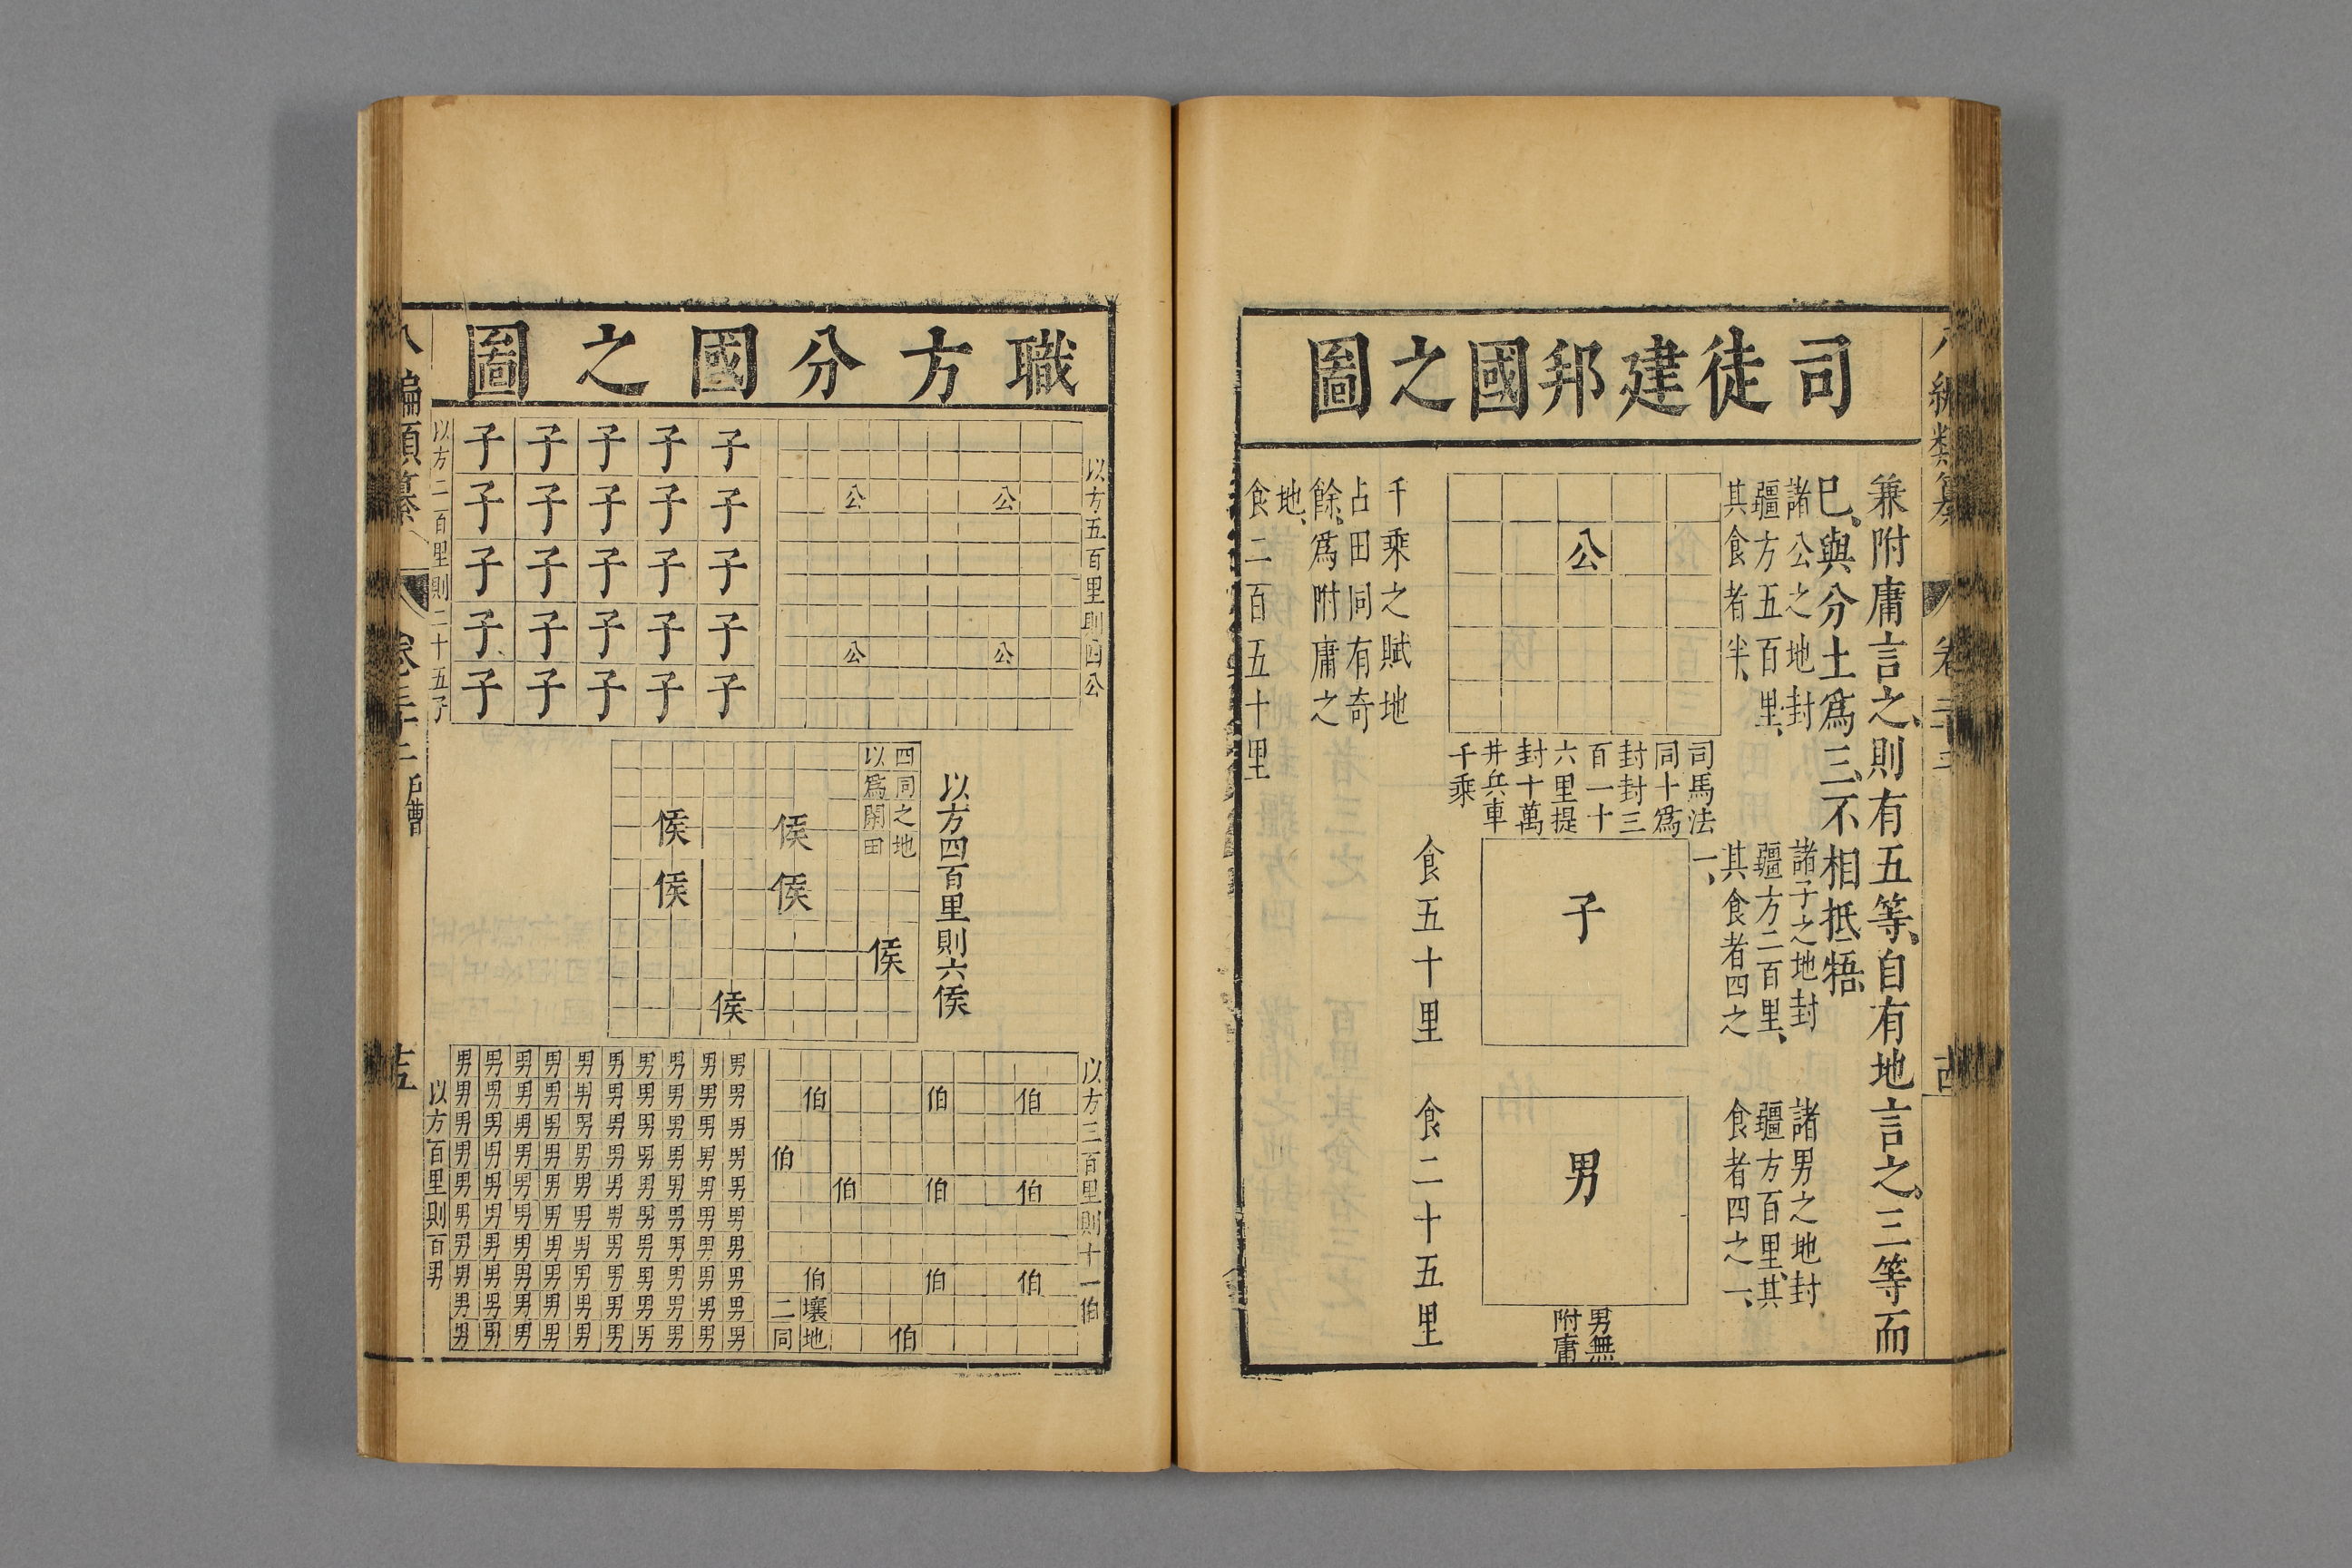 司徒建邦國之圖
兼附庸言之則有五等自有地言之三等而
巳與分土爲三不相抵牾
諸公之地封
疆方五百里
其食者半
公
司馬法
同十爲
封封三
百一十
六里提
封十萬
井兵車
千乘
千乘之賦地
占田同有奇
餘爲附庸之
地
食二百五十里
諸子之地封
疆方二百里
其食者四之
一
子
食五十里
諸男之地封
疆方百里其
食者四之一
男
男無
附庸
食二十五里
職方分國之圖
以方五百里則四公
公公
公公
子子子子子
子子子子子
子子子子子
子子子子子
子子子子子
以方二百里則二十五子
以方四百里則六侯
四同之地
以爲閑田
侯侯
侯侯
侯
侯
以方三百里則十一伯
伯伯伯
伯
伯伯伯
伯伯伯
伯
壤地
二同
男男男男男男男男男男
男男男男男男男男男男
男男男男男男男男男男
男男男男男男男男男男
男男男男男男男男男男
男男男男男男男男男男
男男男男男男男男男男
男男男男男男男男男男
男男男男男男男男男男
男男男男男男男男男男
以方百里則百男
戶曹